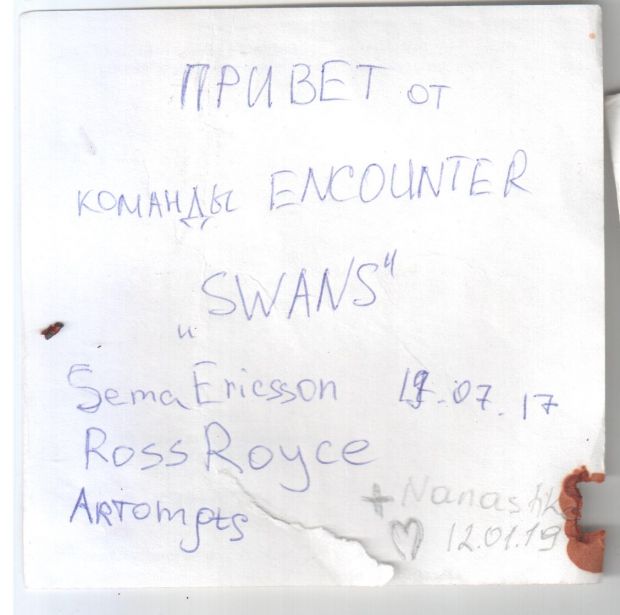 ПРИВЕТ ОТ
КОМАНДЫ ENCOUNTER
„SWANS"
Sema Ericsson 19.07.17
Ross Royce
+ Nanashk
♡ 12.01.19